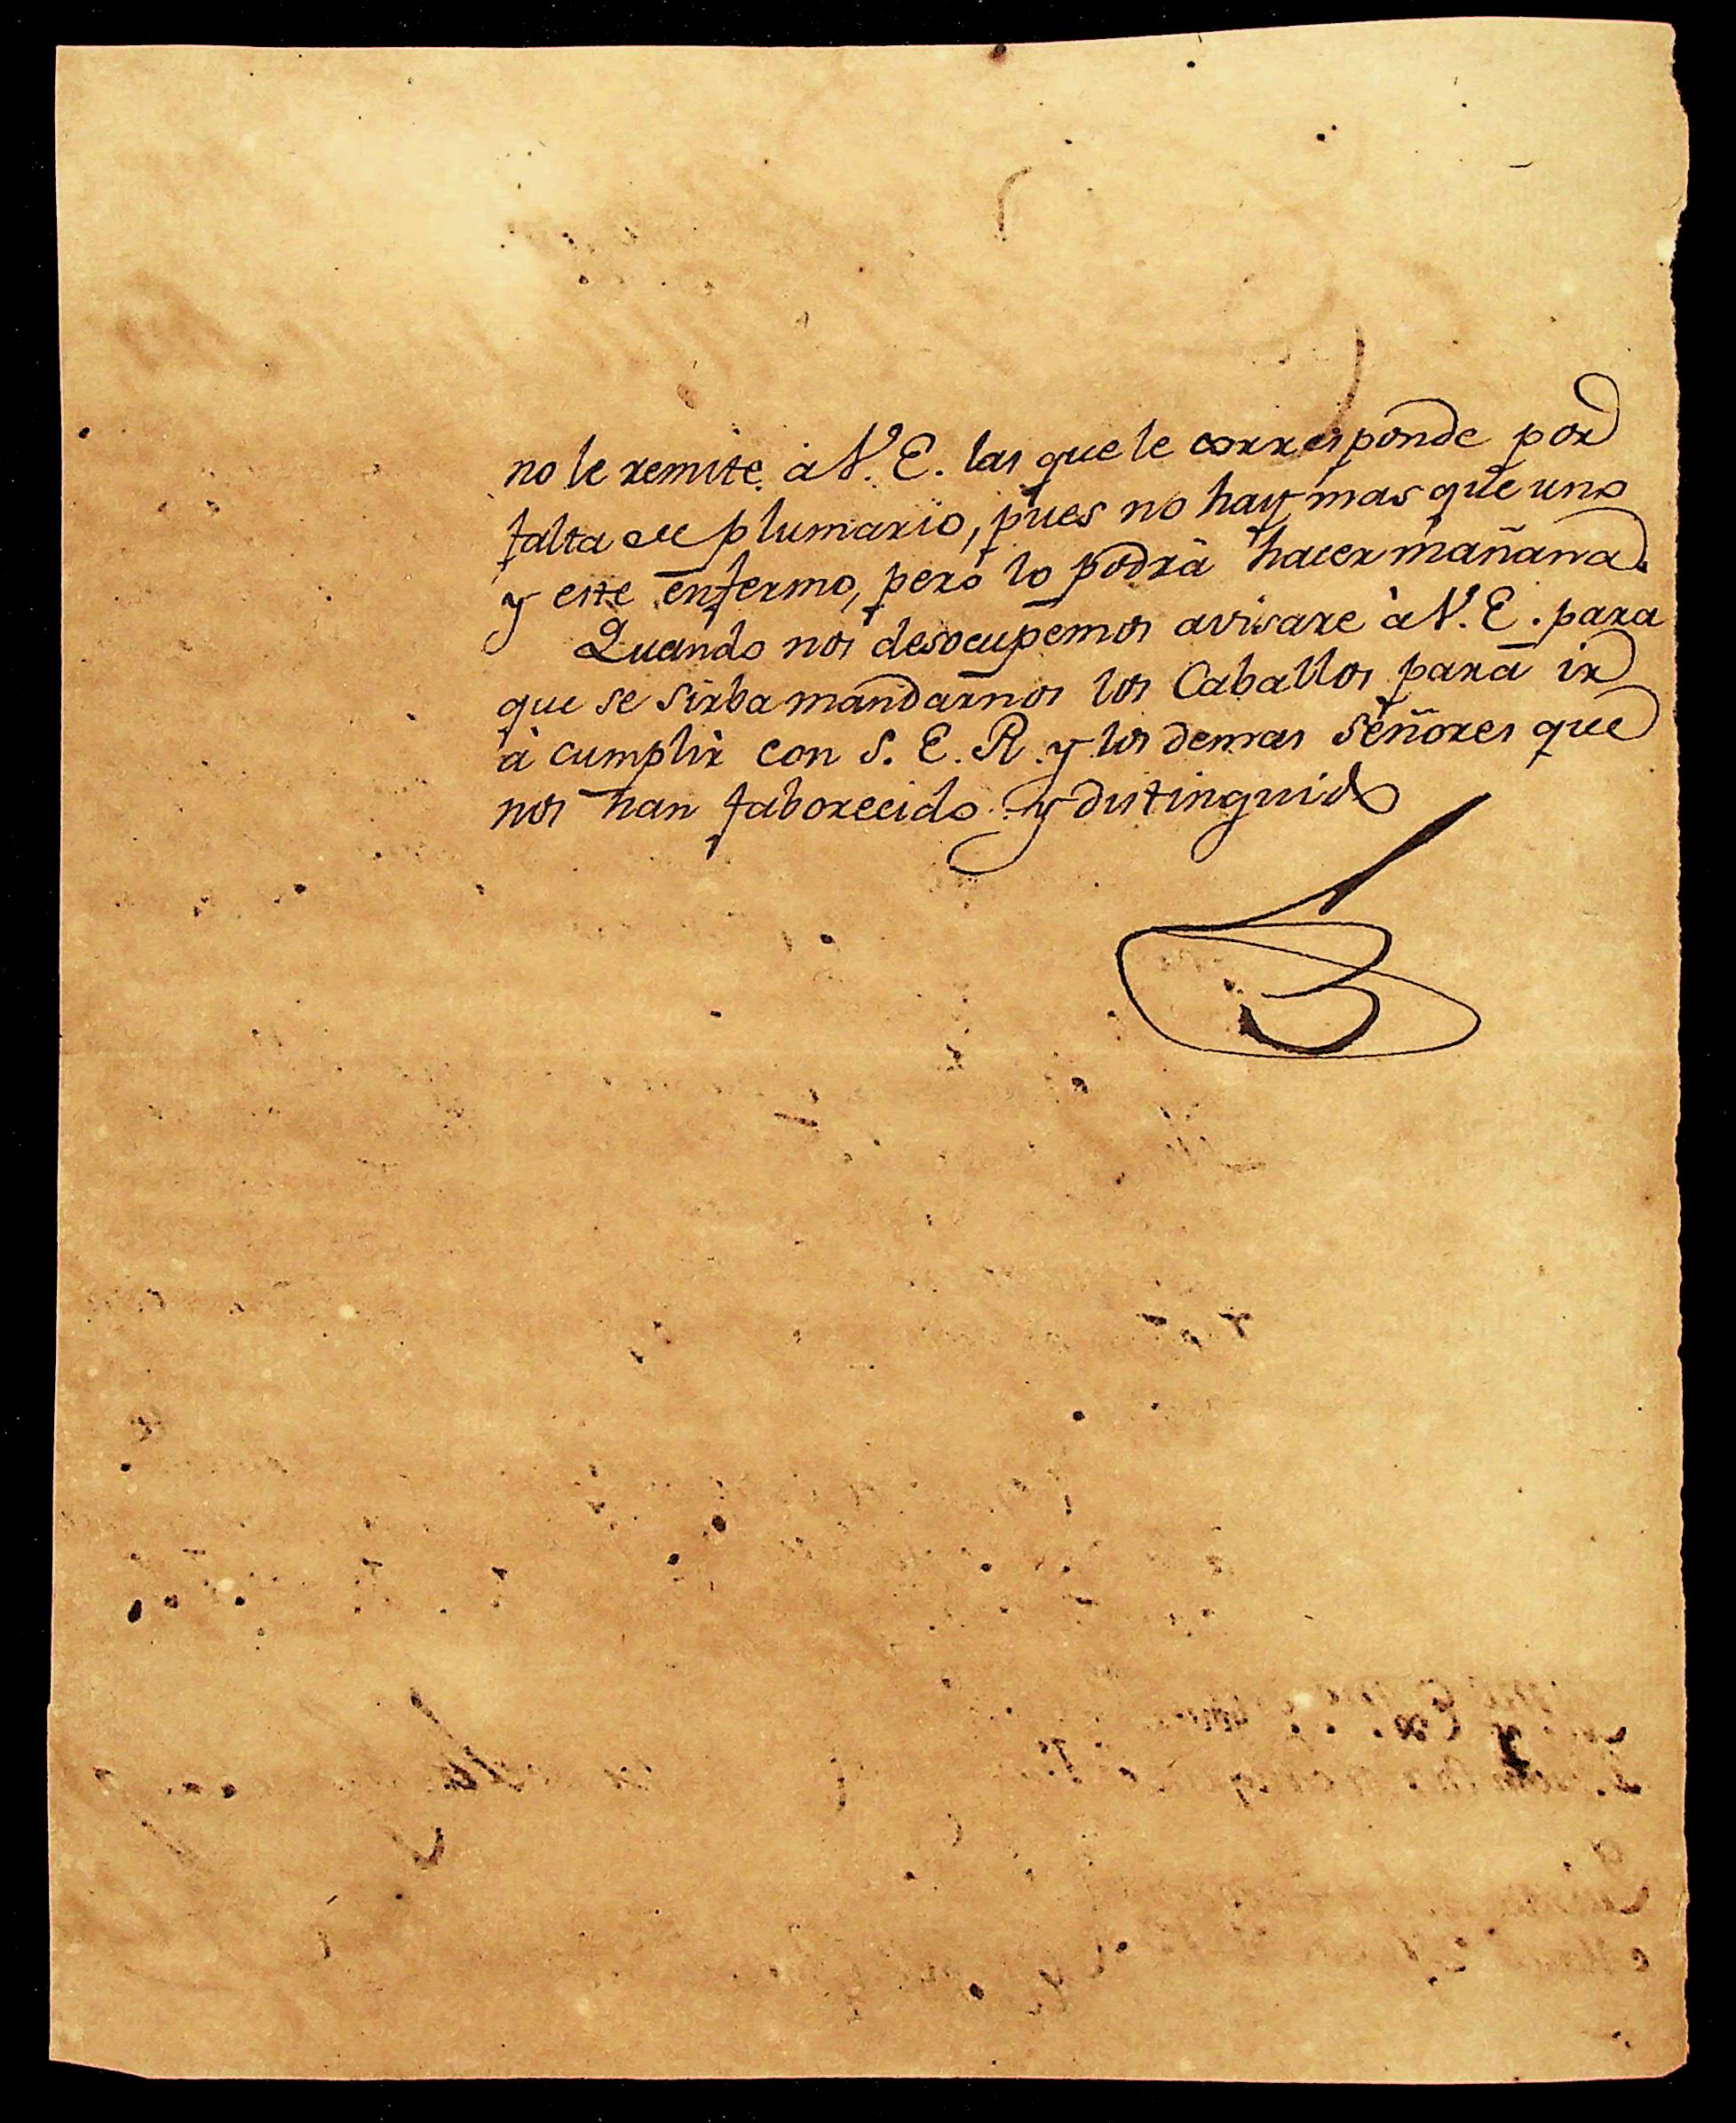 no le remite à V. E. las que le corresponde por
falta de plumario, pues no hay mas que uno
y este enfermo, pero lo podrà hacer mañana.
Quando nos desocupemos avisare à V. E. para
que se sirba mandarnos los Caballos para ir
à cumplir con S. E. R. y los demas Señores que
nos han faborecido y distinguido